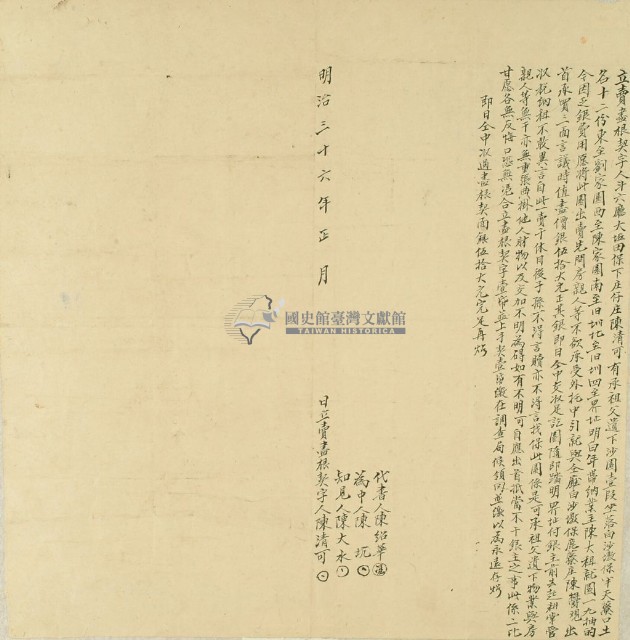 立賣盡根契字人斗六廳大坵田保下庄仔庄陳清可有承祖父遺下沙園壹段坐落白沙墩保半天寮口土
名十二份東至劉家園西至陳家園南至旧圳北至旧圳四至界址明白年帶納業主陳大租就園一九抽的
今因乏銀費用愿將此園出賣先問房親人等不欲承受外托中引就與仝廳白沙墩保應菜庄陳 出
首承買三面言議時值盡價銀伍拾大元正其銀即日仝中交收足訖園隨即踏明界址付銀主前去起耕掌管
收稅納租不敢異言自此一賣千休日後子孫不得言贖亦不得言找保此園係是可承祖父遺下物業與房
親人等無干亦無重張典掛他人財物以及交加不明為碍如有不明可自應出首抵當不干銀主之事此係二比
甘愿各無反悔口恐無憑合立盡根契字壹帋並上手契壹帋繳在調查局候領 並繳以為永遠存炤
即日仝中收過盡根契面銀伍拾大元完足再炤
代書人陳紹華
為中人陳坑
知見人陳大永
明治三十六年正月 日立賣盡根契字人陳清可
國史館臺灣文獻館
TAIWAN HISTORICA